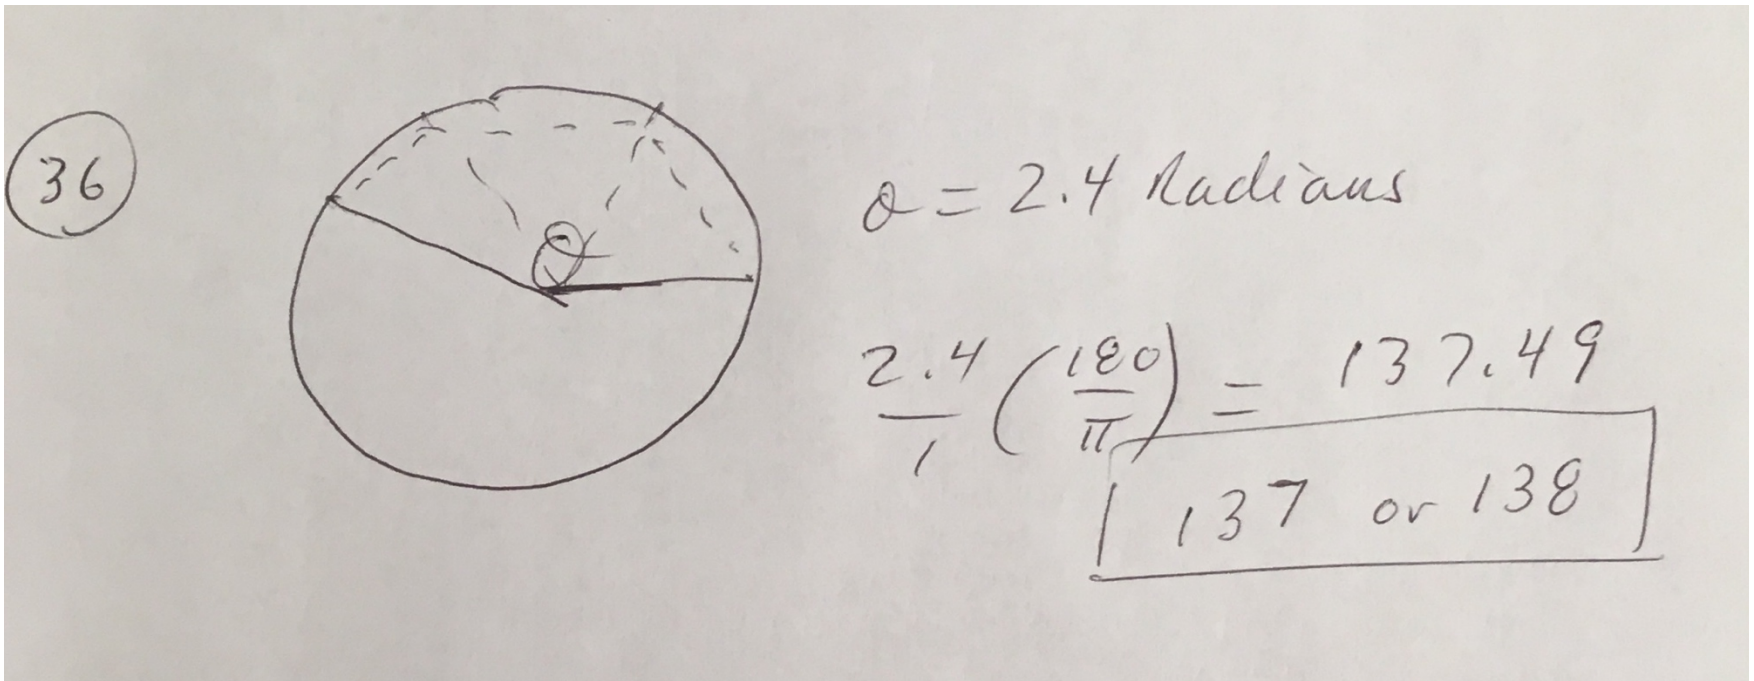 36
θ
θ = 2.4 Radians
2.4/1 (180/π) = 137.49
137 or 138